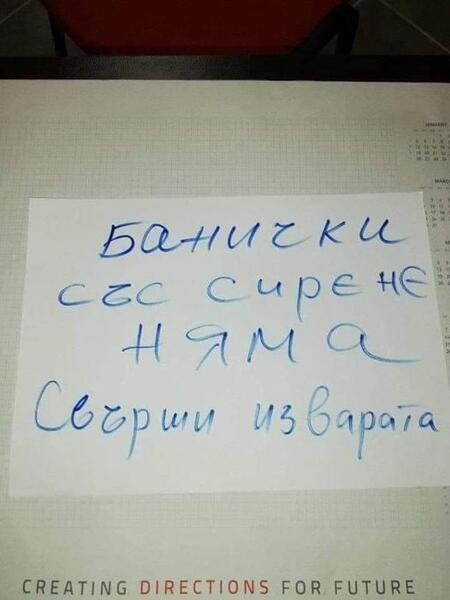 Банички
със сирене
няма
Свърши изварата
CREATING DIRECTIONS FOR FUTURE
JANUARY